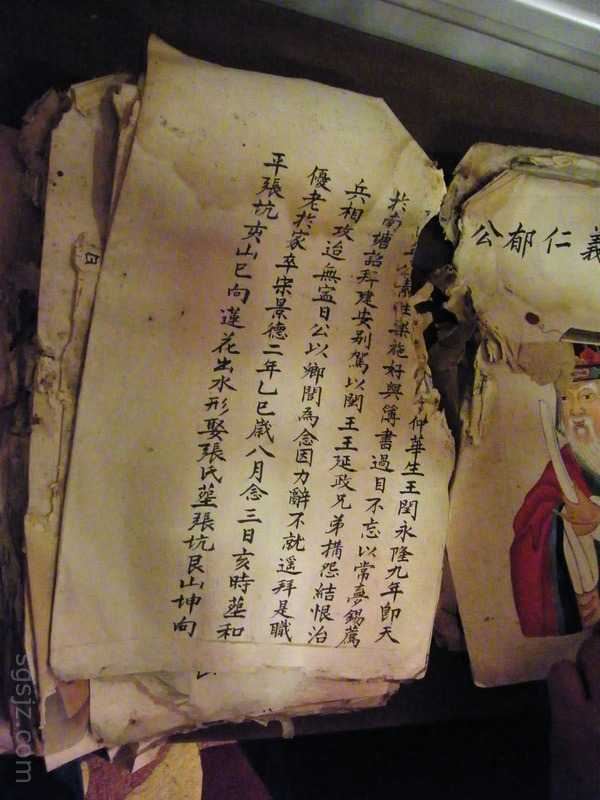 義仁郁公
仲華生王閏永隆九年即天
素性樂施好與簿書過目不忘以常夢錫薦
於南塘詔拜建安别駕以閩王王延政兄弟搆怨結恨治
兵相攻迨無寧日公以鄉閭為念因力辭不就遥拜是職
優老於家卒宋景德二年乙巳歲八月念三日亥時塟和
平張坑亥山巳向蓮花出水形娶張氏塟張坑艮山坤向
sgsjz.com